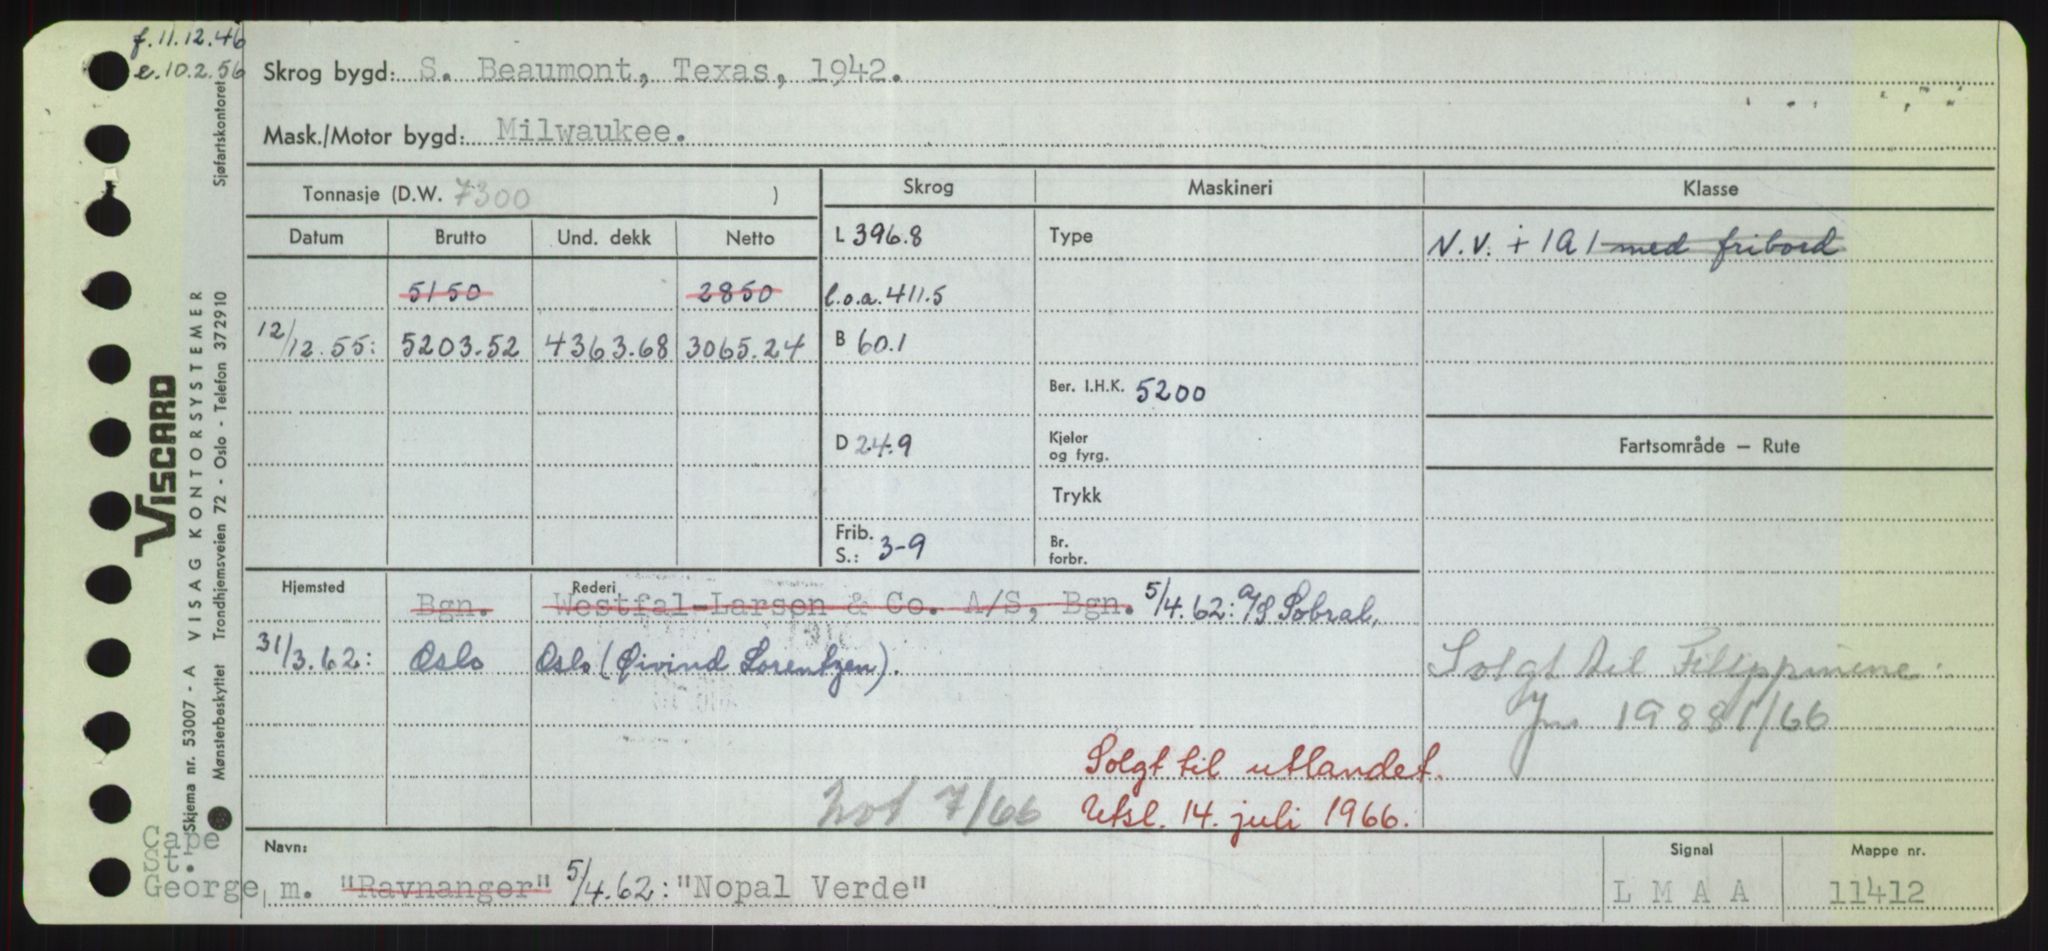 f. 11.12.46
e. 10.2.56
Skrog bygd: S. Beaumont, Texas, 1942.
Mask./Motor bygd: Milwaukee.
Tonnasje (D.W. 7300 )
Skrog Maskineri Klasse
Datum Brutto Und. dekk Netto L 396.8 Type N.V. + 1A1 med fribord
5150 2850 l.o.a. 411.5
12/12.55: 5203.52 4363.68 3065.24 B 60.1
Ber. I.H.K. 5200
D 24.9 Kjeler og fyrg. Fartsområde — Rute
Trykk
Frib. S.: 3-9 Br. forbr.
Hjemsted Rederi
Bgn. Westfal-Larsen & Co. A/S, Bgn. 5/4.62: A/S Sobral,
31/3.62: Oslo Oslo (Øivind Lorentzen).
Solgt til Filippinene.
Jnr 19881/66
Solgt til utlandet.
Not 7/66 Utsl. 14. juli 1966.
Cape
St.
George
Navn: Signal Mappe nr.
m. "Ravnanger" 5/4.62: "Nopal Verde" L M A A 11412
VISCARD
VISAG KONTORSYSTEMER
Skjema nr. 53007 - A
Mønsterbeskyttet Trondhjemsveien 72 - Oslo - Telefon 372910 Sjøfartskontoret